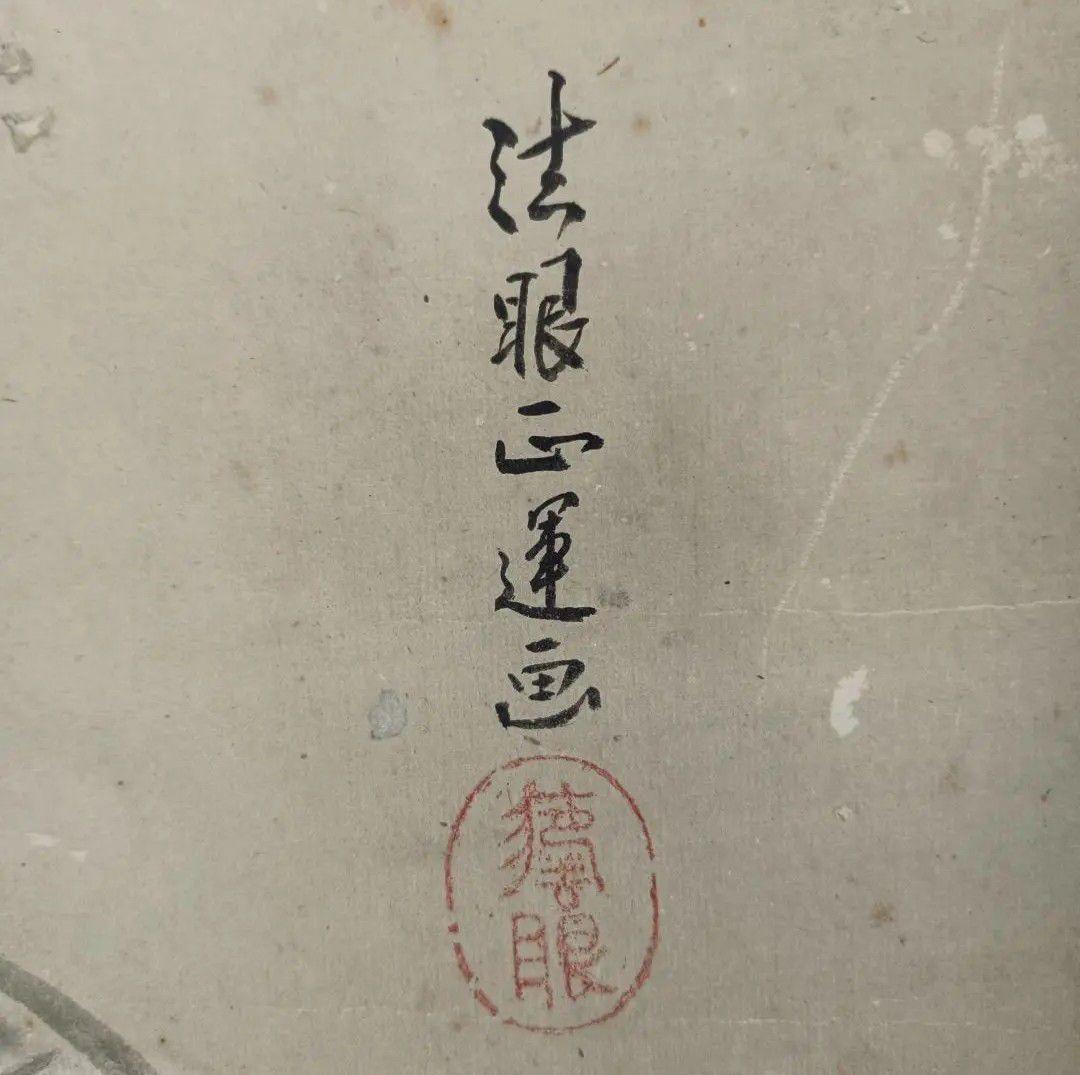 法眼正運画